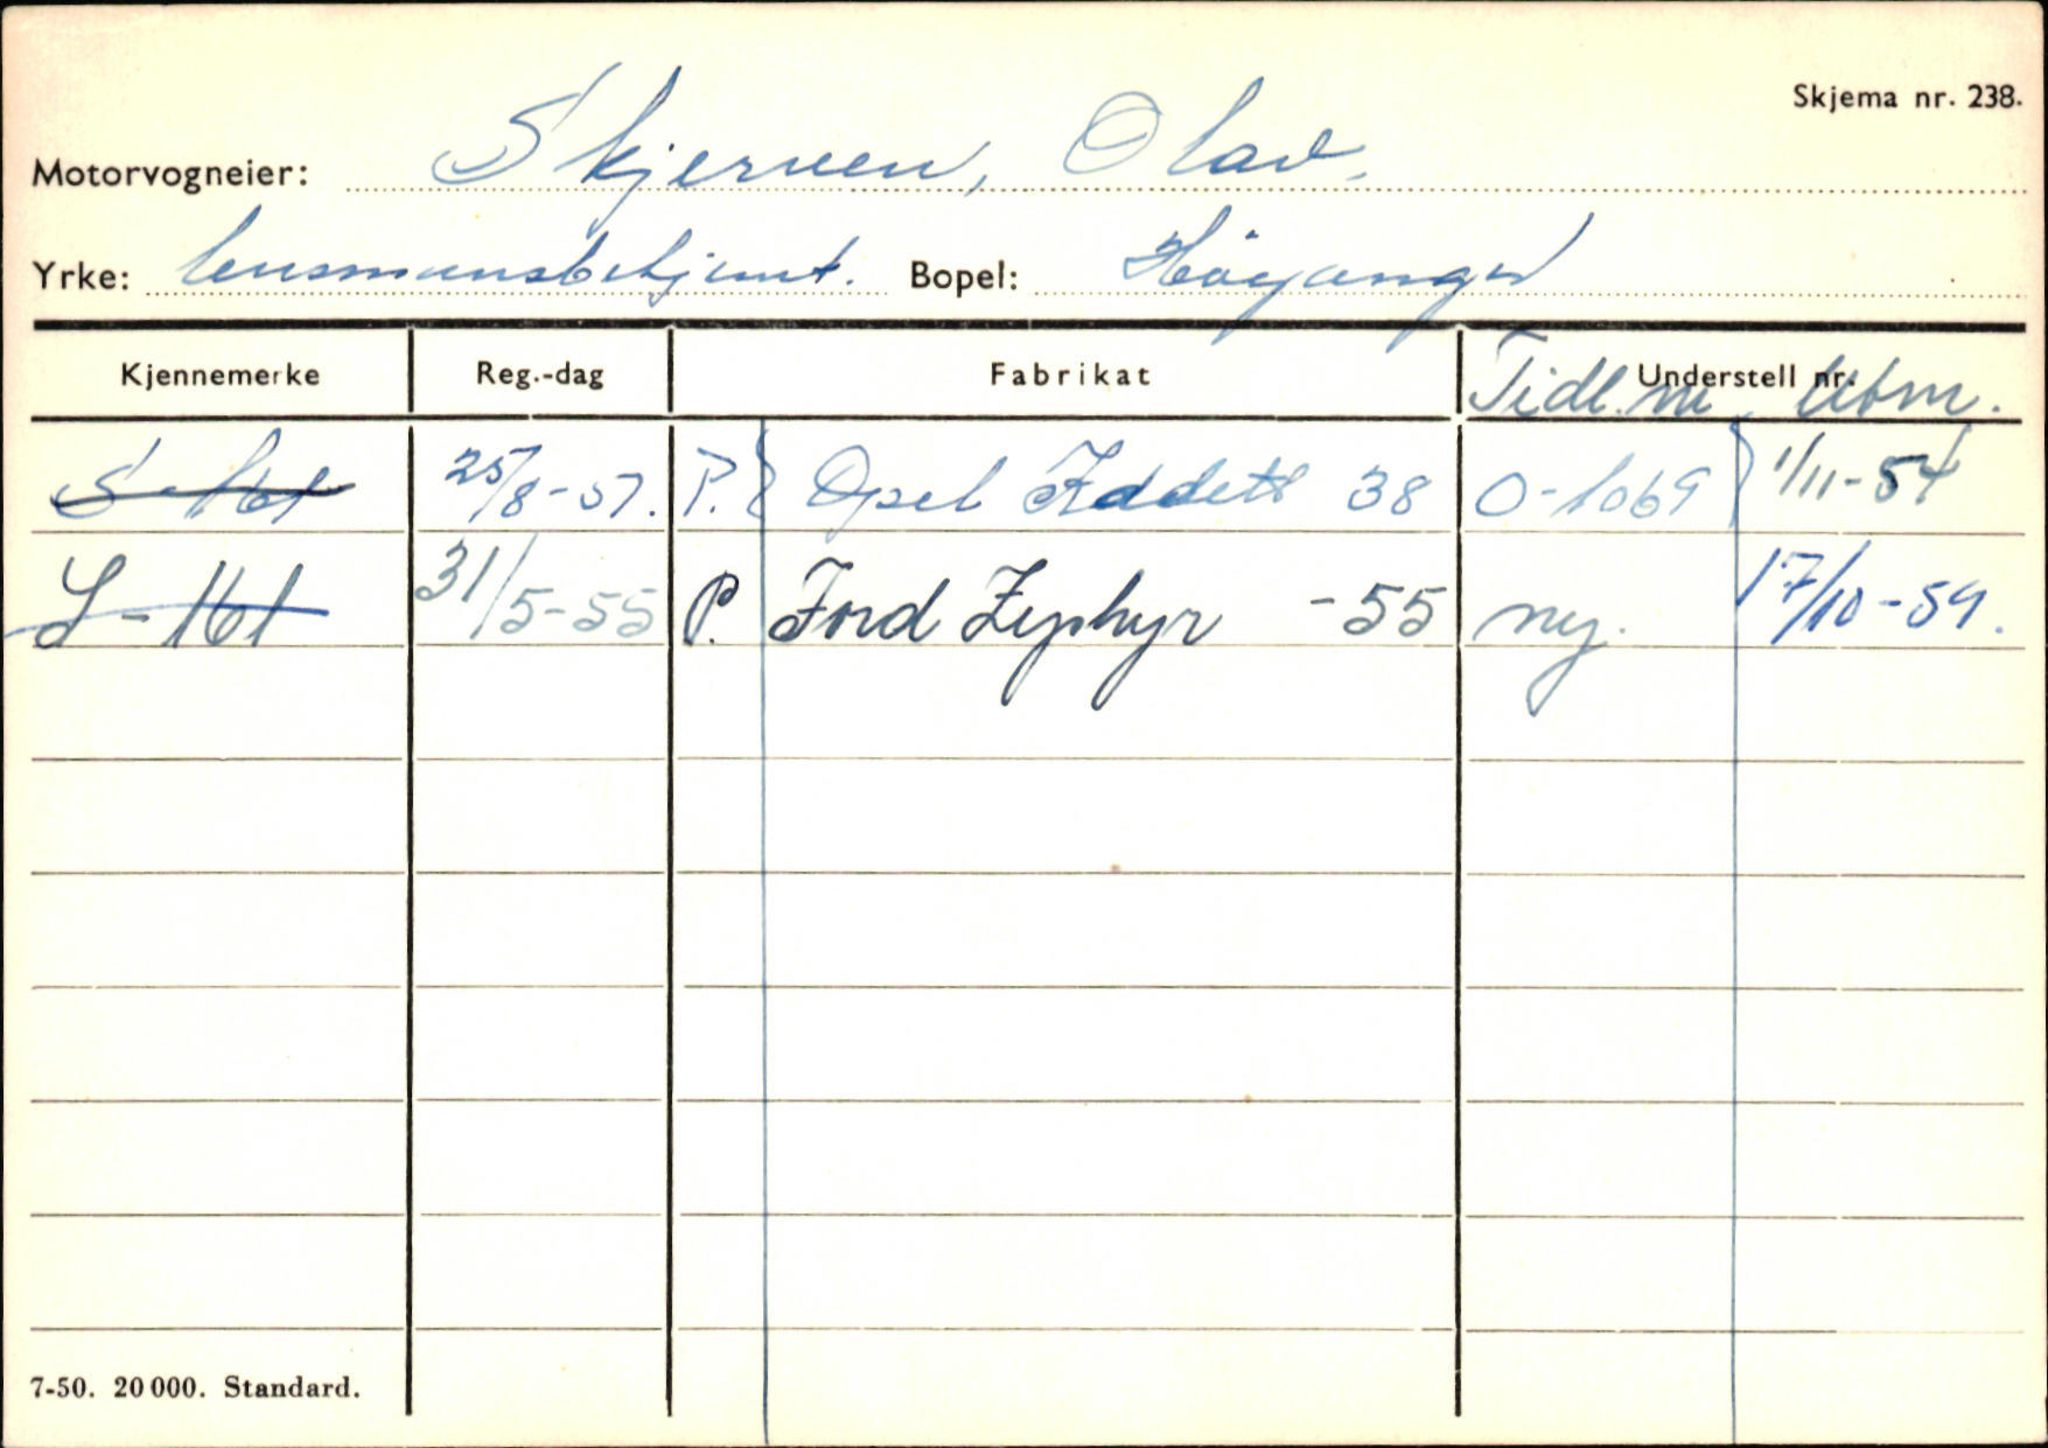 Skjema nr. 238.
Motorvogneier: Skjerven, Olav.
Yrke: lensmansbetjent. Bopel: Höyanger
Kjennemerke Reg.-dag Fabrikat Understell nr. Tidl. nr Ubm.
S-161 25/8-51. P. Opel Kadett 38 O-1069 1/11-54
S-161 31/5-55 P. Ford Zephyr -55 ny. 17/10-59.
7-50. 20 000. Standard.